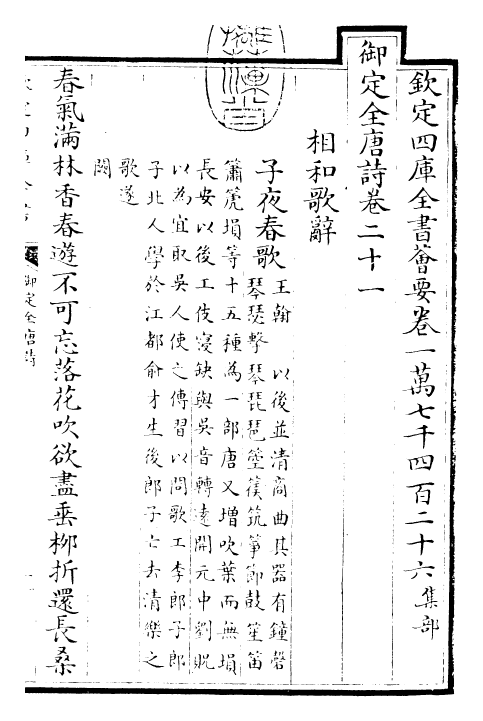 欽定四庫全書薈要卷一萬七千四百二十六 集部
御定全唐詩卷二十一
相和歌辭
子夜春歌 王翰 以後並清商曲其器有鐘磬
琴瑟擊琴琵琶箜篌筑箏節鼓笙笛
簫篪塤等十五種為一部唐又增吹葉而無塤
長安以後工伎寖缺與吳音轉遠開元中劉貺
以為宜取吳人使之傳習以問歌工李郎子郎
子北人學於江都俞才生後郎子亡去清樂之
歌遂
闕
春氣滿林香春遊不可忘落花吹欲盡垂柳折還長桑
御定全唐詩